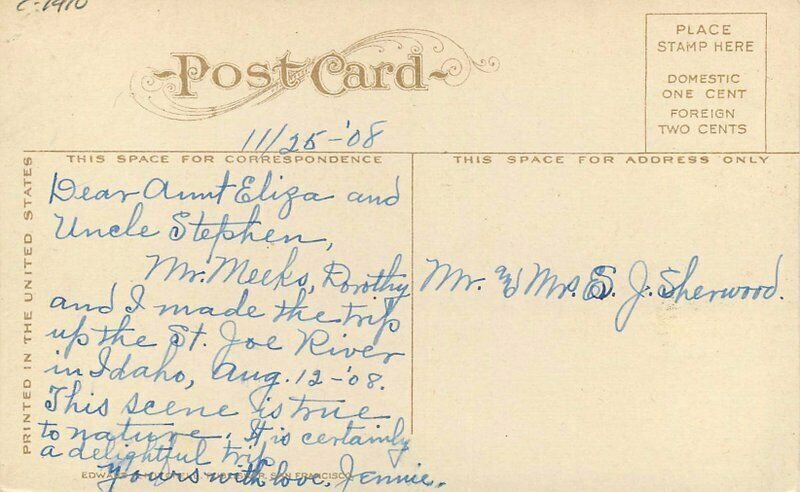 C-1910
PLACE
STAMP HERE
DOMESTIC
ONE CENT
FOREIGN
TWO CENTS
Post Card
11/25-'08
THIS SPACE FOR CORRESPONDENCE
THIS SPACE FOR ADDRESS ONLY
PRINTED IN THE UNITED STATES
Dear Aunt Eliza and
Uncle Stephen,
Mr. Meeks, Dorothy
and I made the trip
up the St. Joe River
in Idaho, Aug. 12-'08.
This scene is true
to nature. It is certainly
a delightful trip
Yours with love, Jennie.
Mr. & Mrs. S. J. Sherwood.
SAN FRANCISCO